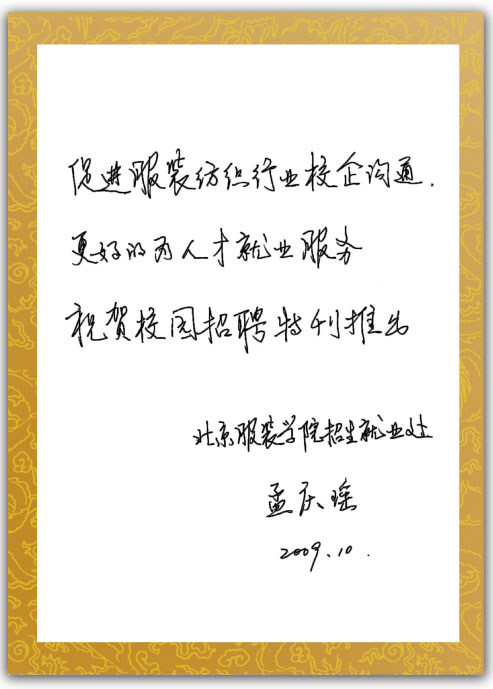 促进服装纺织行业校企沟通.
更好的为人才就业服务
祝贺校园招聘特刊推出
北京服装学院招生就业处
孟庆瑶
2009.10.